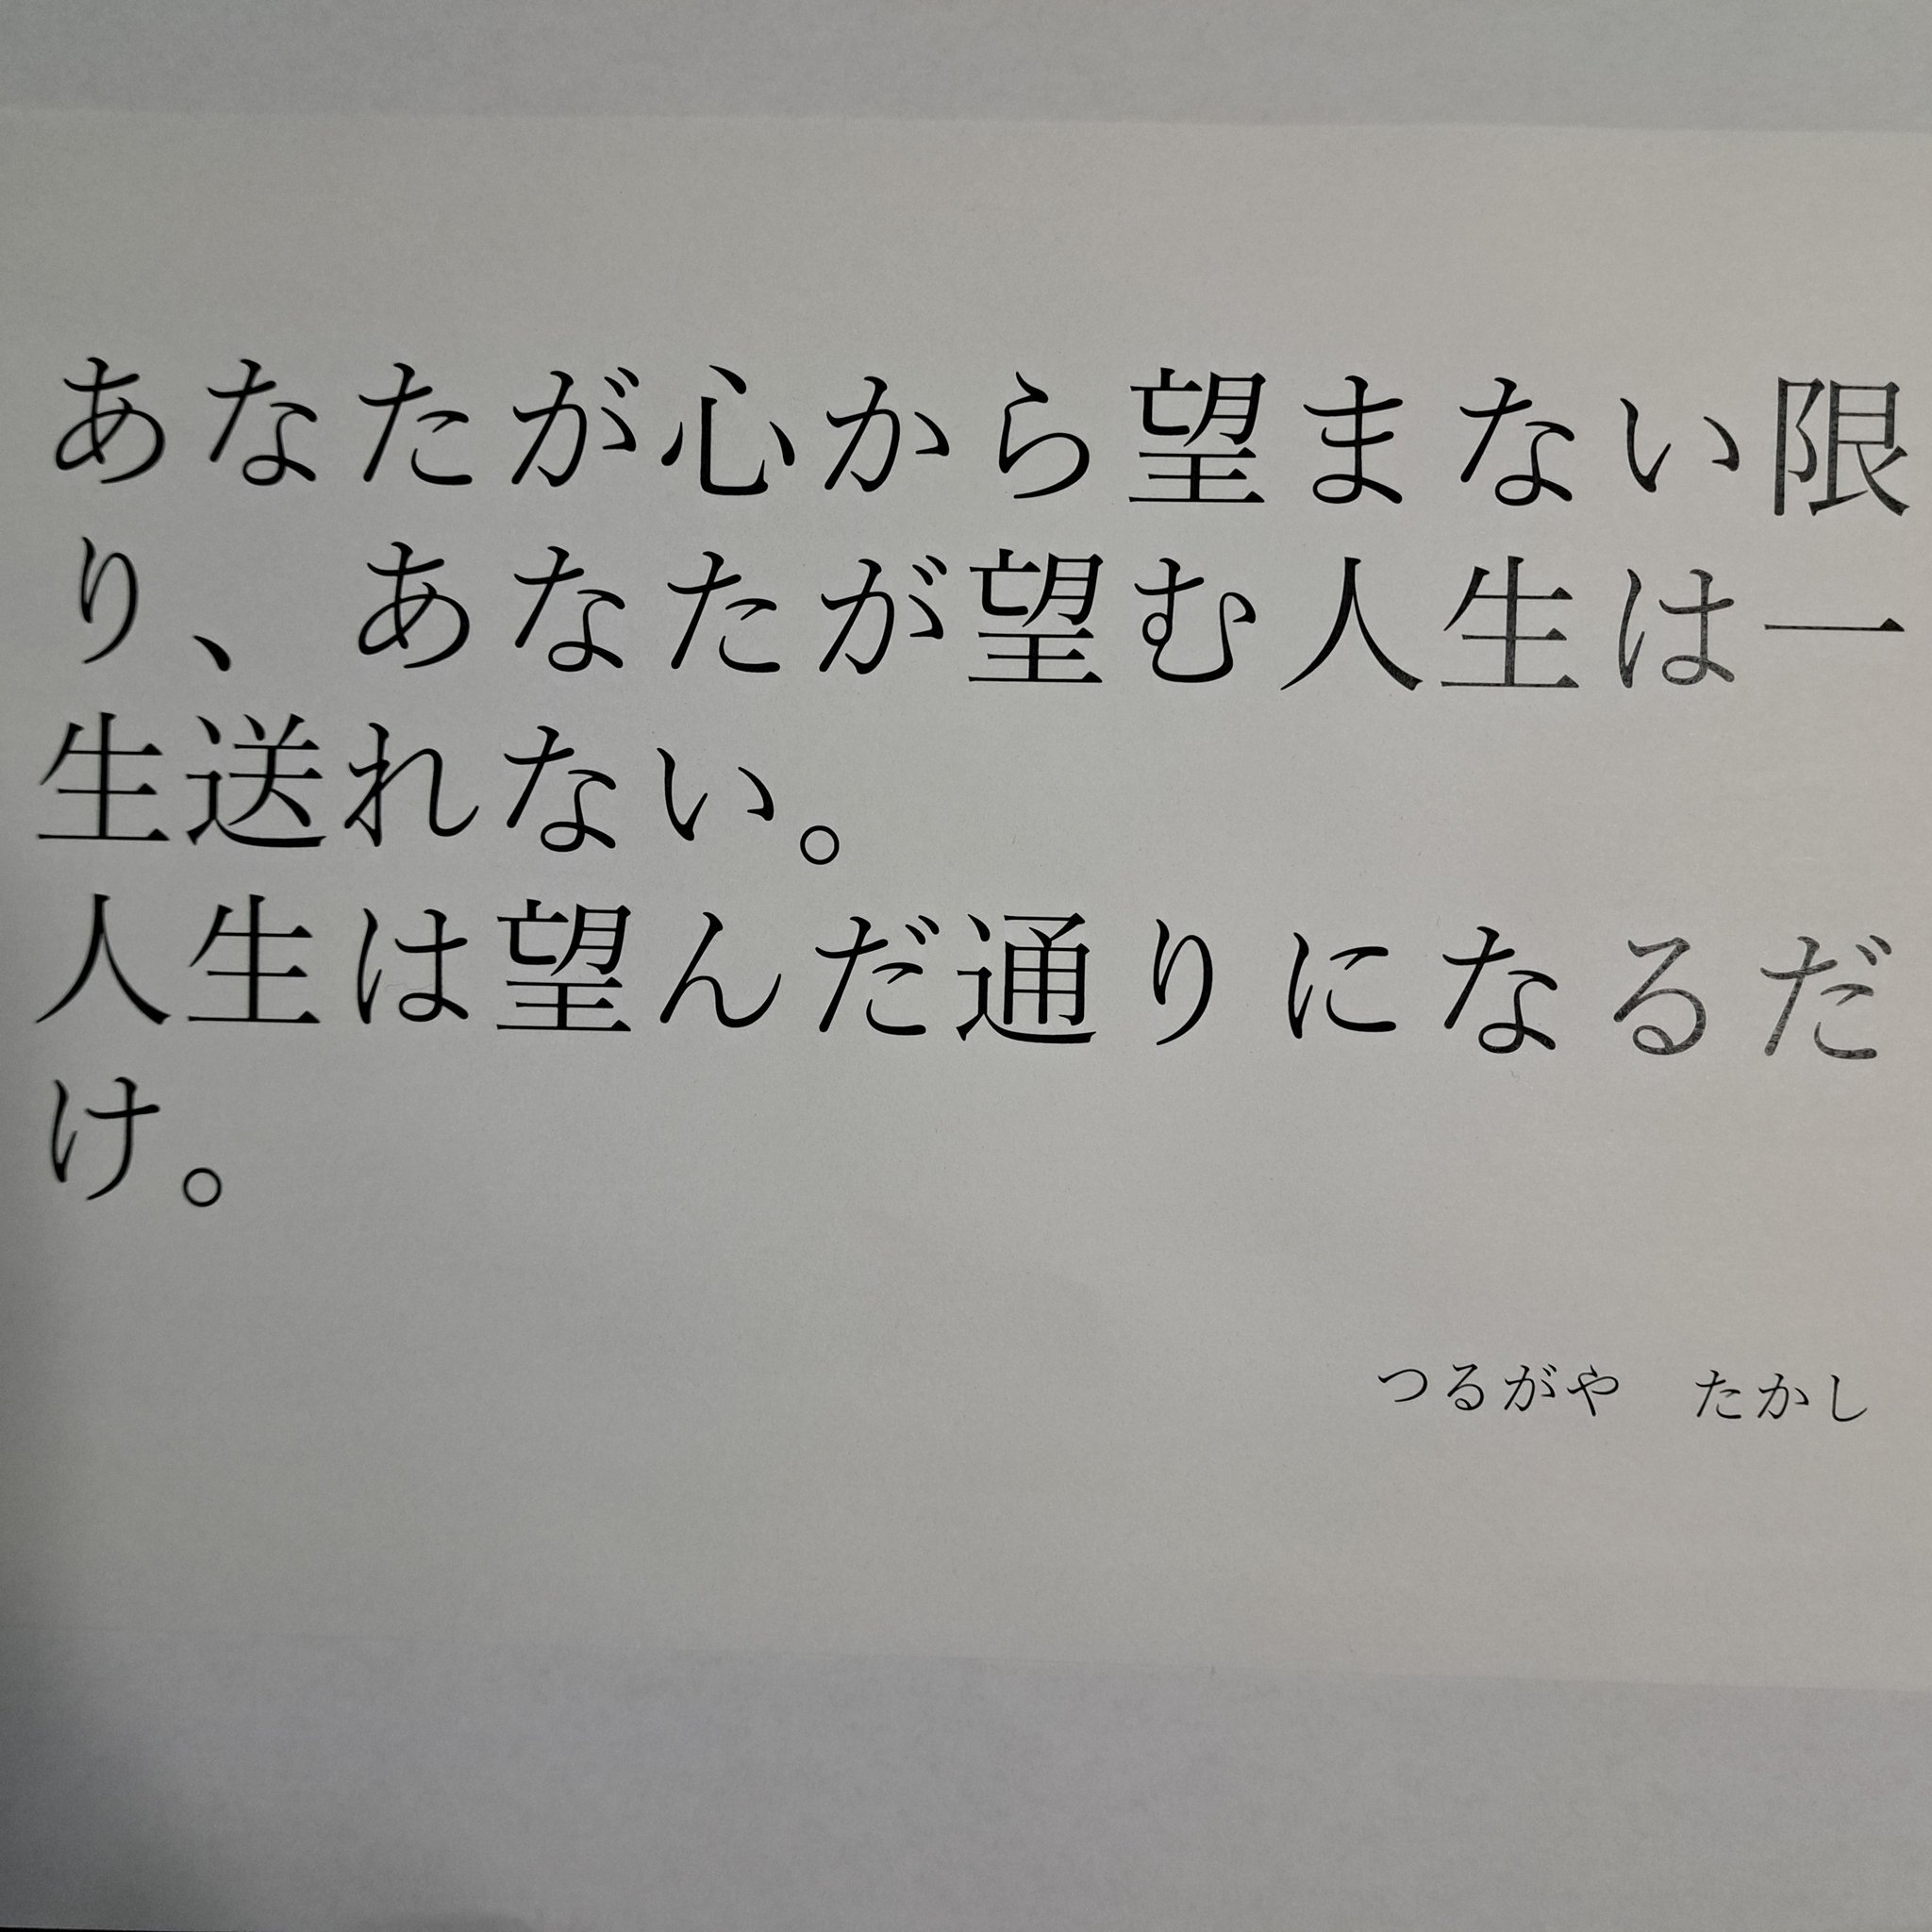 あなたが心から望まない限
り、あなたが望む人生は一
生送れない。
人生は望んだ通りになるだ
け。
つるがや　たかし